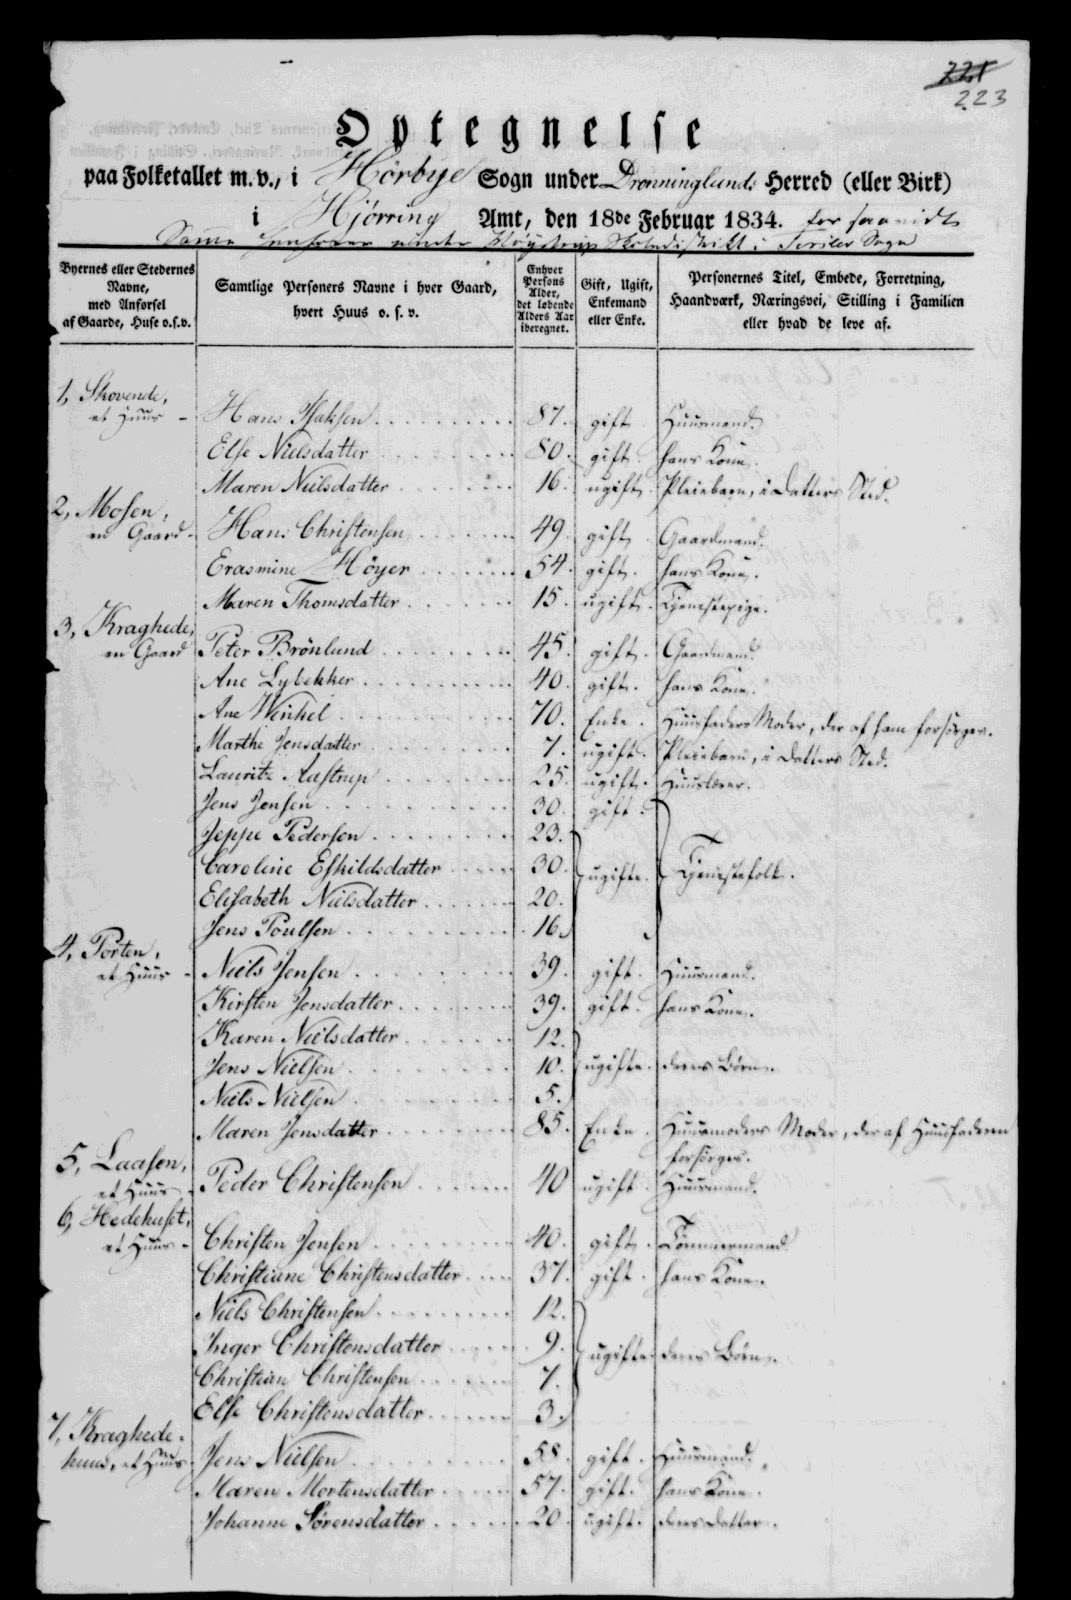 221
223
Optegnelse
paa Folketallet m. v., i Hörbye Sogn under Dronninglunds Herred (eller Birk)
i Hjørring Amt, den 18de Februar 1834. for saavidt
Samme henhører under Skoledistrikt i Sogn
Byernes eller Stedernes Navne, med Anførsel af Gaarde, Huse o.s.v.
Samtlige Personers Navne i hver Gaard, hvert Huus o. s. v.
Enhver Persons Alder, det løbende Alders Aar iberegnet.
Gift, Ugift, Enkemand eller Enke.
Personernes Titel, Embede, Forretning, Haandværk, Næringsvei, Stilling i Familien eller hvad de leve af.
1, Skovende,
et Huus - Hans Isaksen 87. gift Huusmand.
Else Nielsdatter 80. gift. hans Kone.
Maren Nielsdatter 16. ugift. Pleiebarn, i Datters Sted.
2, Mosen,
en Gaard - Hans Christensen 49. gift. Gaardmand.
Erasmine Höyer 54. gift. hans Kone.
Maren Thomsdatter 15. ugift. Tjenestepige.
3, Kraghede,
en Gaard Peter Brönlund 45. gift. Gaardmand.
Ane Lybekker 40. gift. hans Kone.
Ane Winkel 70. Enke. Huusfaders Moder, der af ham forsörges.
Marthe Jensdatter 7. ugift. Pleiebarn, i Datters Sted.
Lauritz Aastrup 25. ugift. Huuslærer.
Jens Jensen 30. gift.
Jeppe Pedersen 23.
Caroline Eskildsdatter 30. ugifte. Tjenestefolk.
Elisabeth Nielsdatter 20.
Jens Poulsen 16.
4, Porten,
et Huus - Niels Jensen 39. gift. Huusmand.
Kirsten Jensdatter 39. gift. hans Kone.
Karen Nielsdatter 12.
Jens Nielsen 10. ugifte. deres Börn.
Niels Nielsen 5.
Maren Jensdatter 85. Enke. Huusmoders Moder, der af Huusfaderen
forsörges.
5, Laasen,
et Huus - Peder Christensen 40 ugift. Huusmand.
6, Hedehuset,
et Huus - Christen Jensen 40. gift. Tömmermand.
Christiane Christensdatter 37. gift. hans Kone.
Niels Christensen 12.
Inger Christensdatter 9. ugifte. deres Börn.
Christian Christensen 7.
Else Christensdatter 3.
7, Kraghede-
huus, et Huus. Jens Nielsen 58. gift. Huusmand.
Maren Mortensdatter 57. gift. hans Kone.
Johanne Sörensdatter 20. ugift. deres Datter.